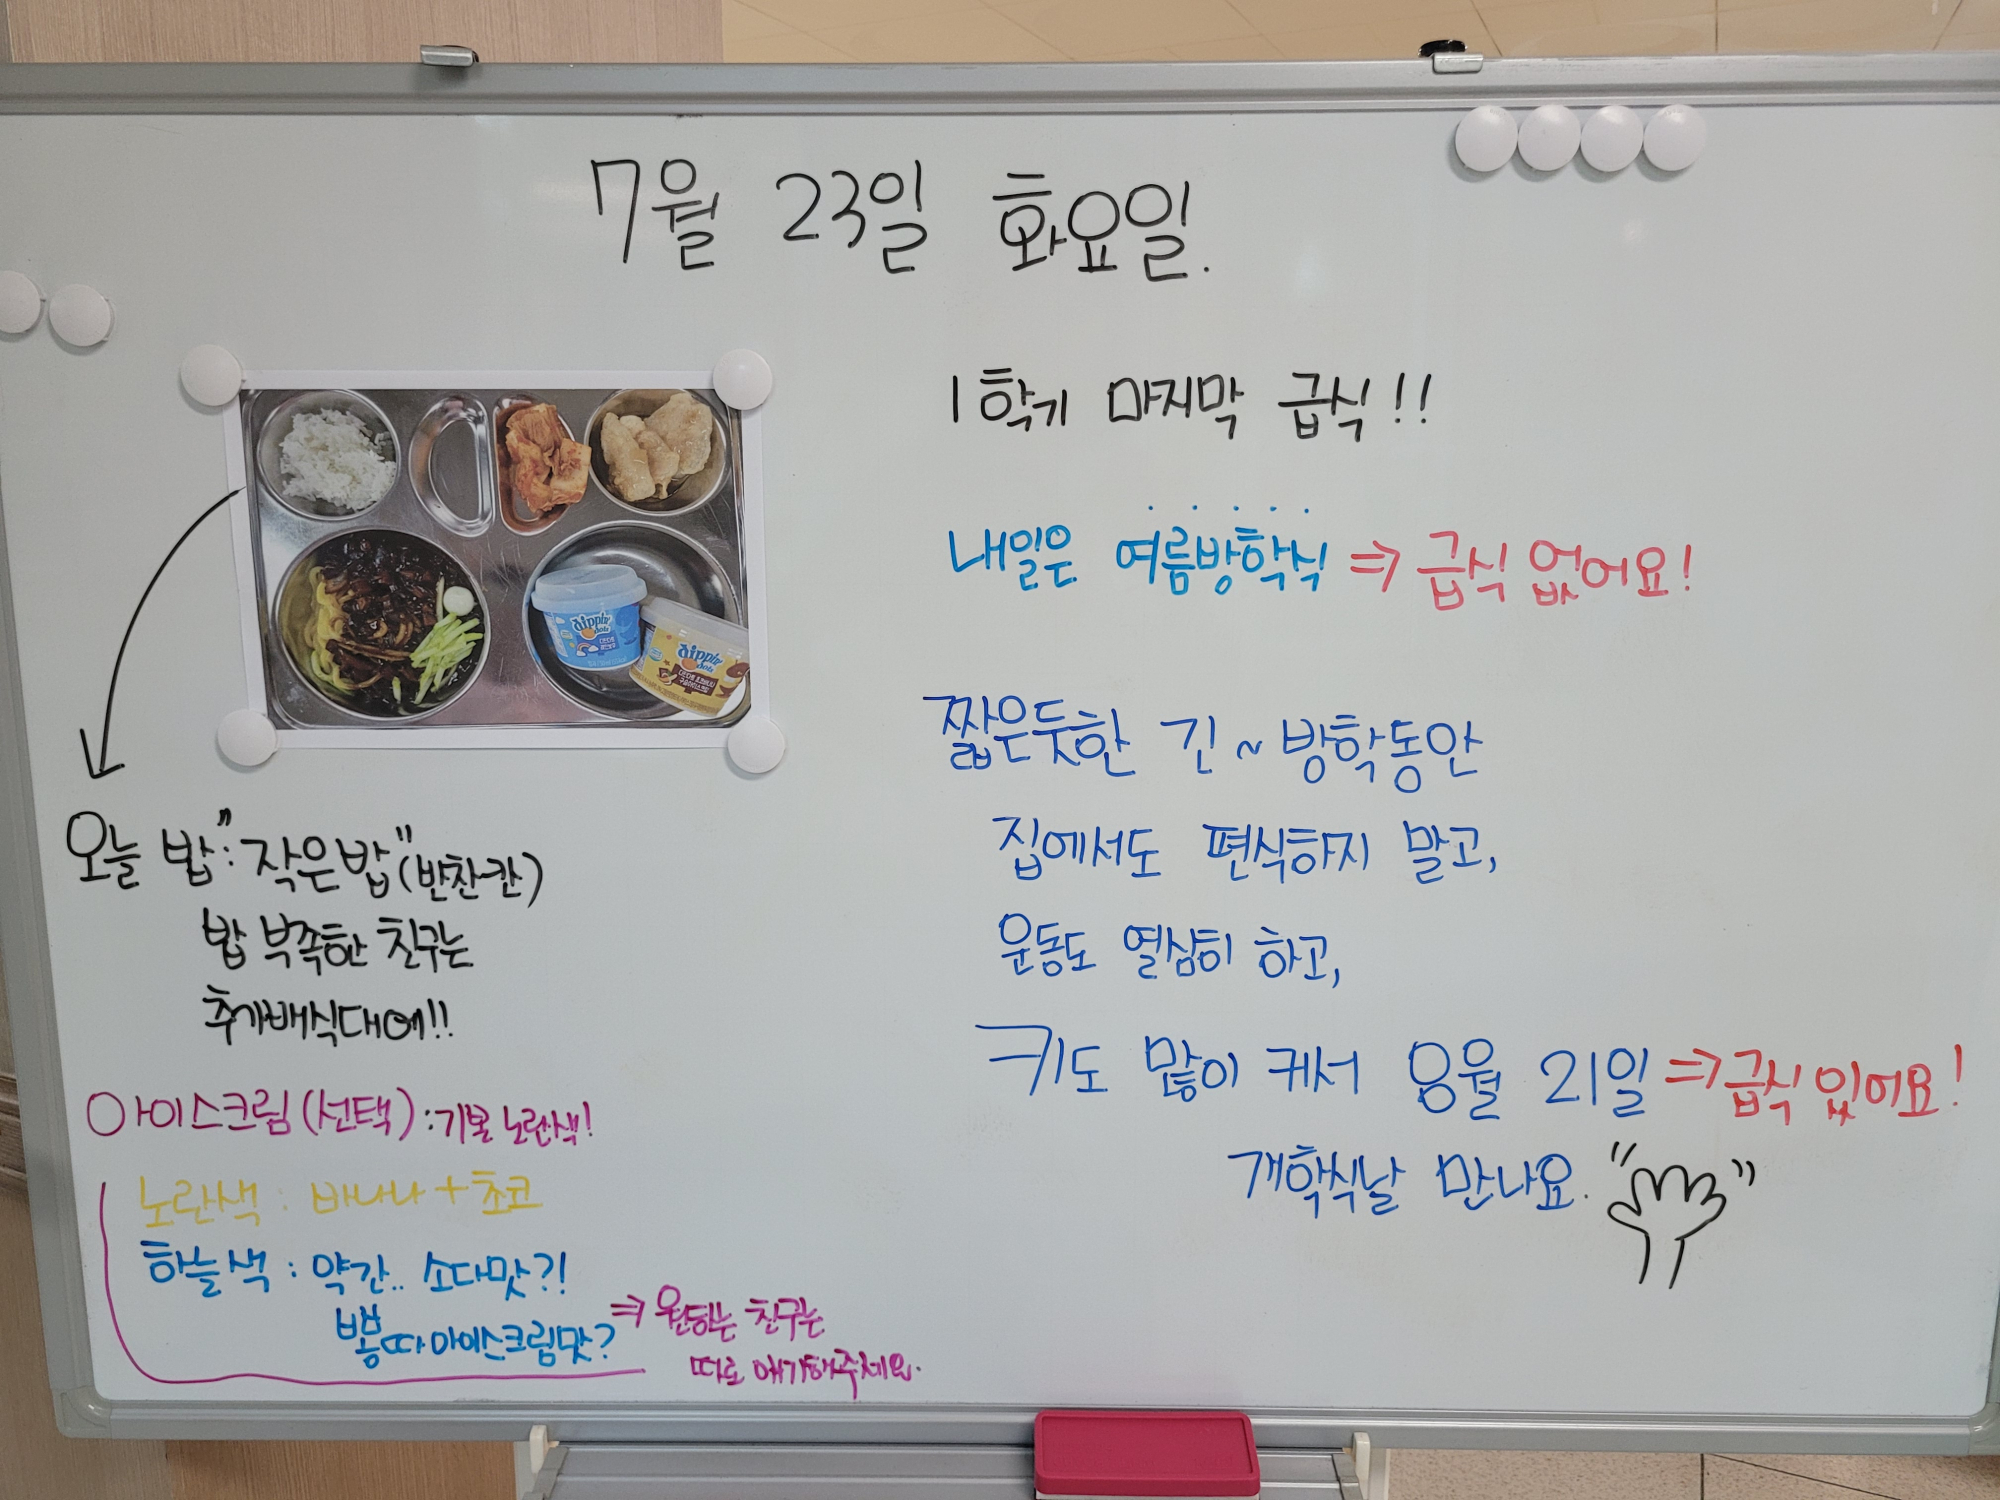 7월 23일 화요일.
1학기 마지막 급식!!
내일은 여름방학식 ⇒ 급식 없어요!
짧은듯한 긴~방학동안
집에서도 편식하지 말고,
운동도 열심히 하고,
키도 많이 커서 8월 21일 ⇒ 급식 있어요!
개학식날 만나요.
dippin' dots
dippin' dots
오늘 밥 : "작은밥" (반찬칸)
밥 부족한 친구는
추가배식대에!!
아이스크림(선택) : 기본 노란색!
노란색 : 바나나 + 초코
하늘색 : 약간.. 소다맛?!
뽕따아이스크림맛?
⇒ 원하는 친구는
따로 얘기해주세요.